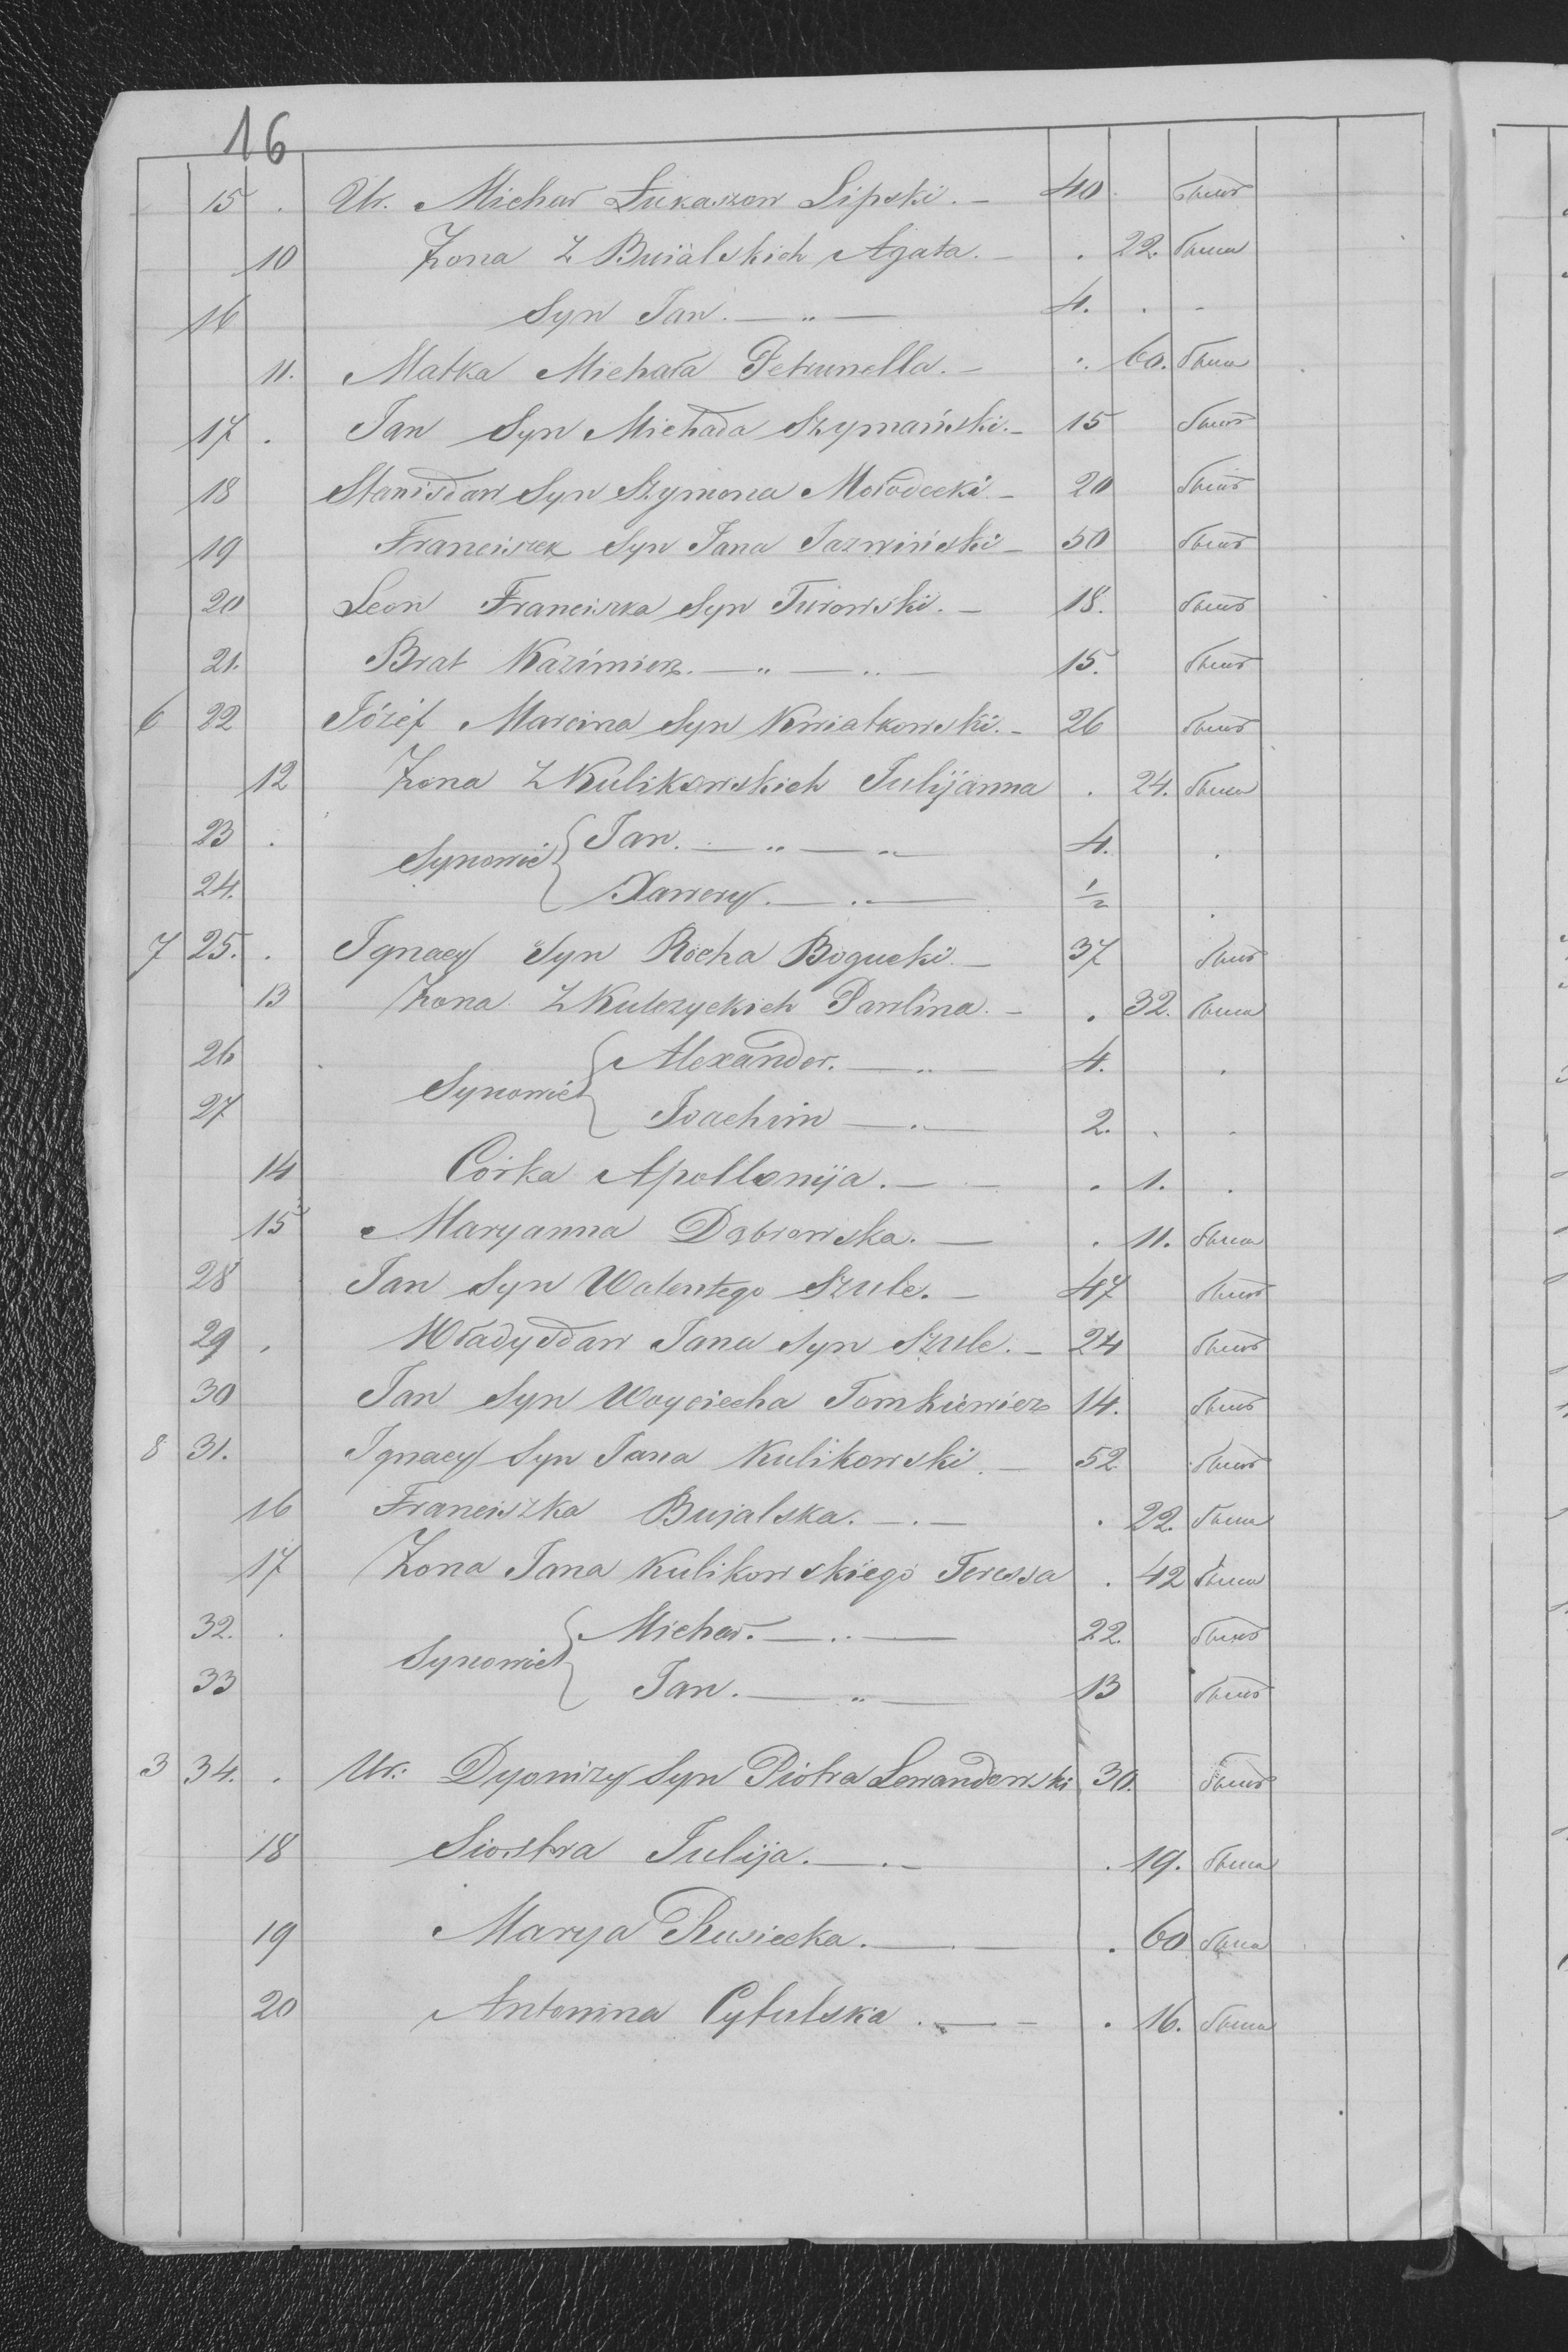 16
15 . Ur. Michał Łukaszow Lipski. — 40. былъ
10 Żona z Bujalskich Agata. — . 22. была
16 Syn Jan. — „ — 4. . -
11. Matka Michała Petrunella. — . 60. была
17 . Jan Syn Michała Szymański. — 15 былъ
18 Stanisław Syn Szymona Mołodecki. — 20 былъ
19 Franciszek Syn Jana Jazwiński — 50 былъ
20 Leon Franciszka Syn Turowski. — 18. былъ
21. Brat Kazimierz. — „ — „ — 15. былъ
6 22 Józef Marcina Syn Kwiatkowski. — 26 былъ
12 Żona z Kulikowskich Julijanna . 24. была
23 . Synowie { Jan. — „ — „ — 4. .
24. Xawery. — . — 1/2 .
7 25. . Ignacy Syn Rocha Bogucki. — 37 былъ
13 Żona z Kulczyckich Pawlina. — . 32. была
26 Synowie { Alexander. — „ — 4. .
27 Joachim — „ — 2. . .
14 Córka Apollonija. — — . 1. .
15 Maryanna Dąbrowska. — . 11. была
28 Jan Syn Walentego Szulc. — 47 былъ
29 . Władysław Jana Syn Szulc. — 24 былъ
30 Jan Syn Woyciecha Tomkiewicz 14. былъ
8 31. Ignacy Syn Jana Kulikowski. — 52 былъ
16 Franciszka Bujalska. — . — . 22. была
17 Żona Jana Kulikowskiego Teressa . 42 была
32. . Synowie { Michał. — „ — 22. былъ
33 Jan. — „ — 13 былъ
3 34. . Ur: Dyonizy Syn Piotra Lewandowski 30. былъ
18 Siostra Julija. — . — . 19. была
19 Marya Rusiecka. — — . 60 была
20 Antonina Cybulska . — — . 16. была